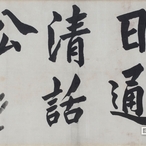 日通
清話
公